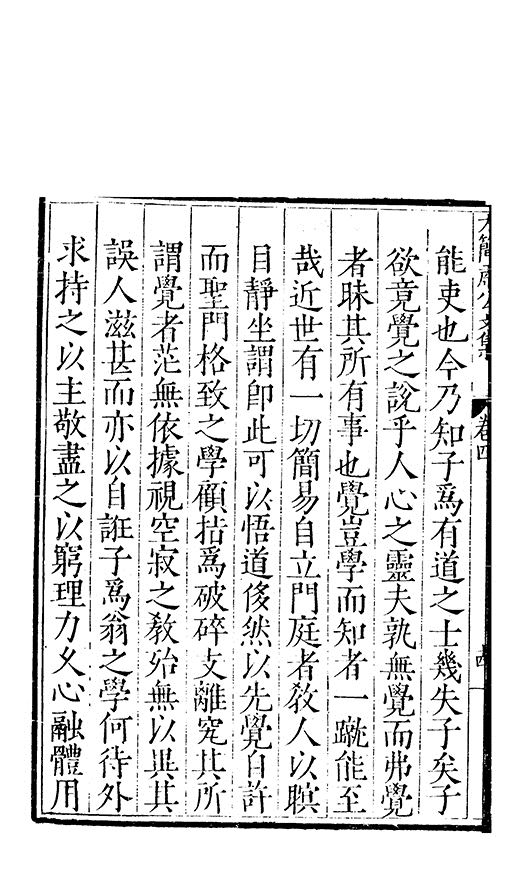 能吏也今乃知子爲有道之士幾失子矣子
欲竟覺之說乎人心之靈夫孰無覺而弗覺
者昧其所有事也覺豈學而知者一蹴能至
哉近世有一切簡易自立門庭者敎人以瞑
目靜坐謂卽此可以悟道俊然以先覺自許
而聖門格致之學顧拈爲破碎支離究其所
謂覺者茫無依據視空寂之敎殆無以異其
誤人滋甚而亦以自誑子爲翁之學何待外
求持之以主敬盡之以窮理力久心融體用
卷四